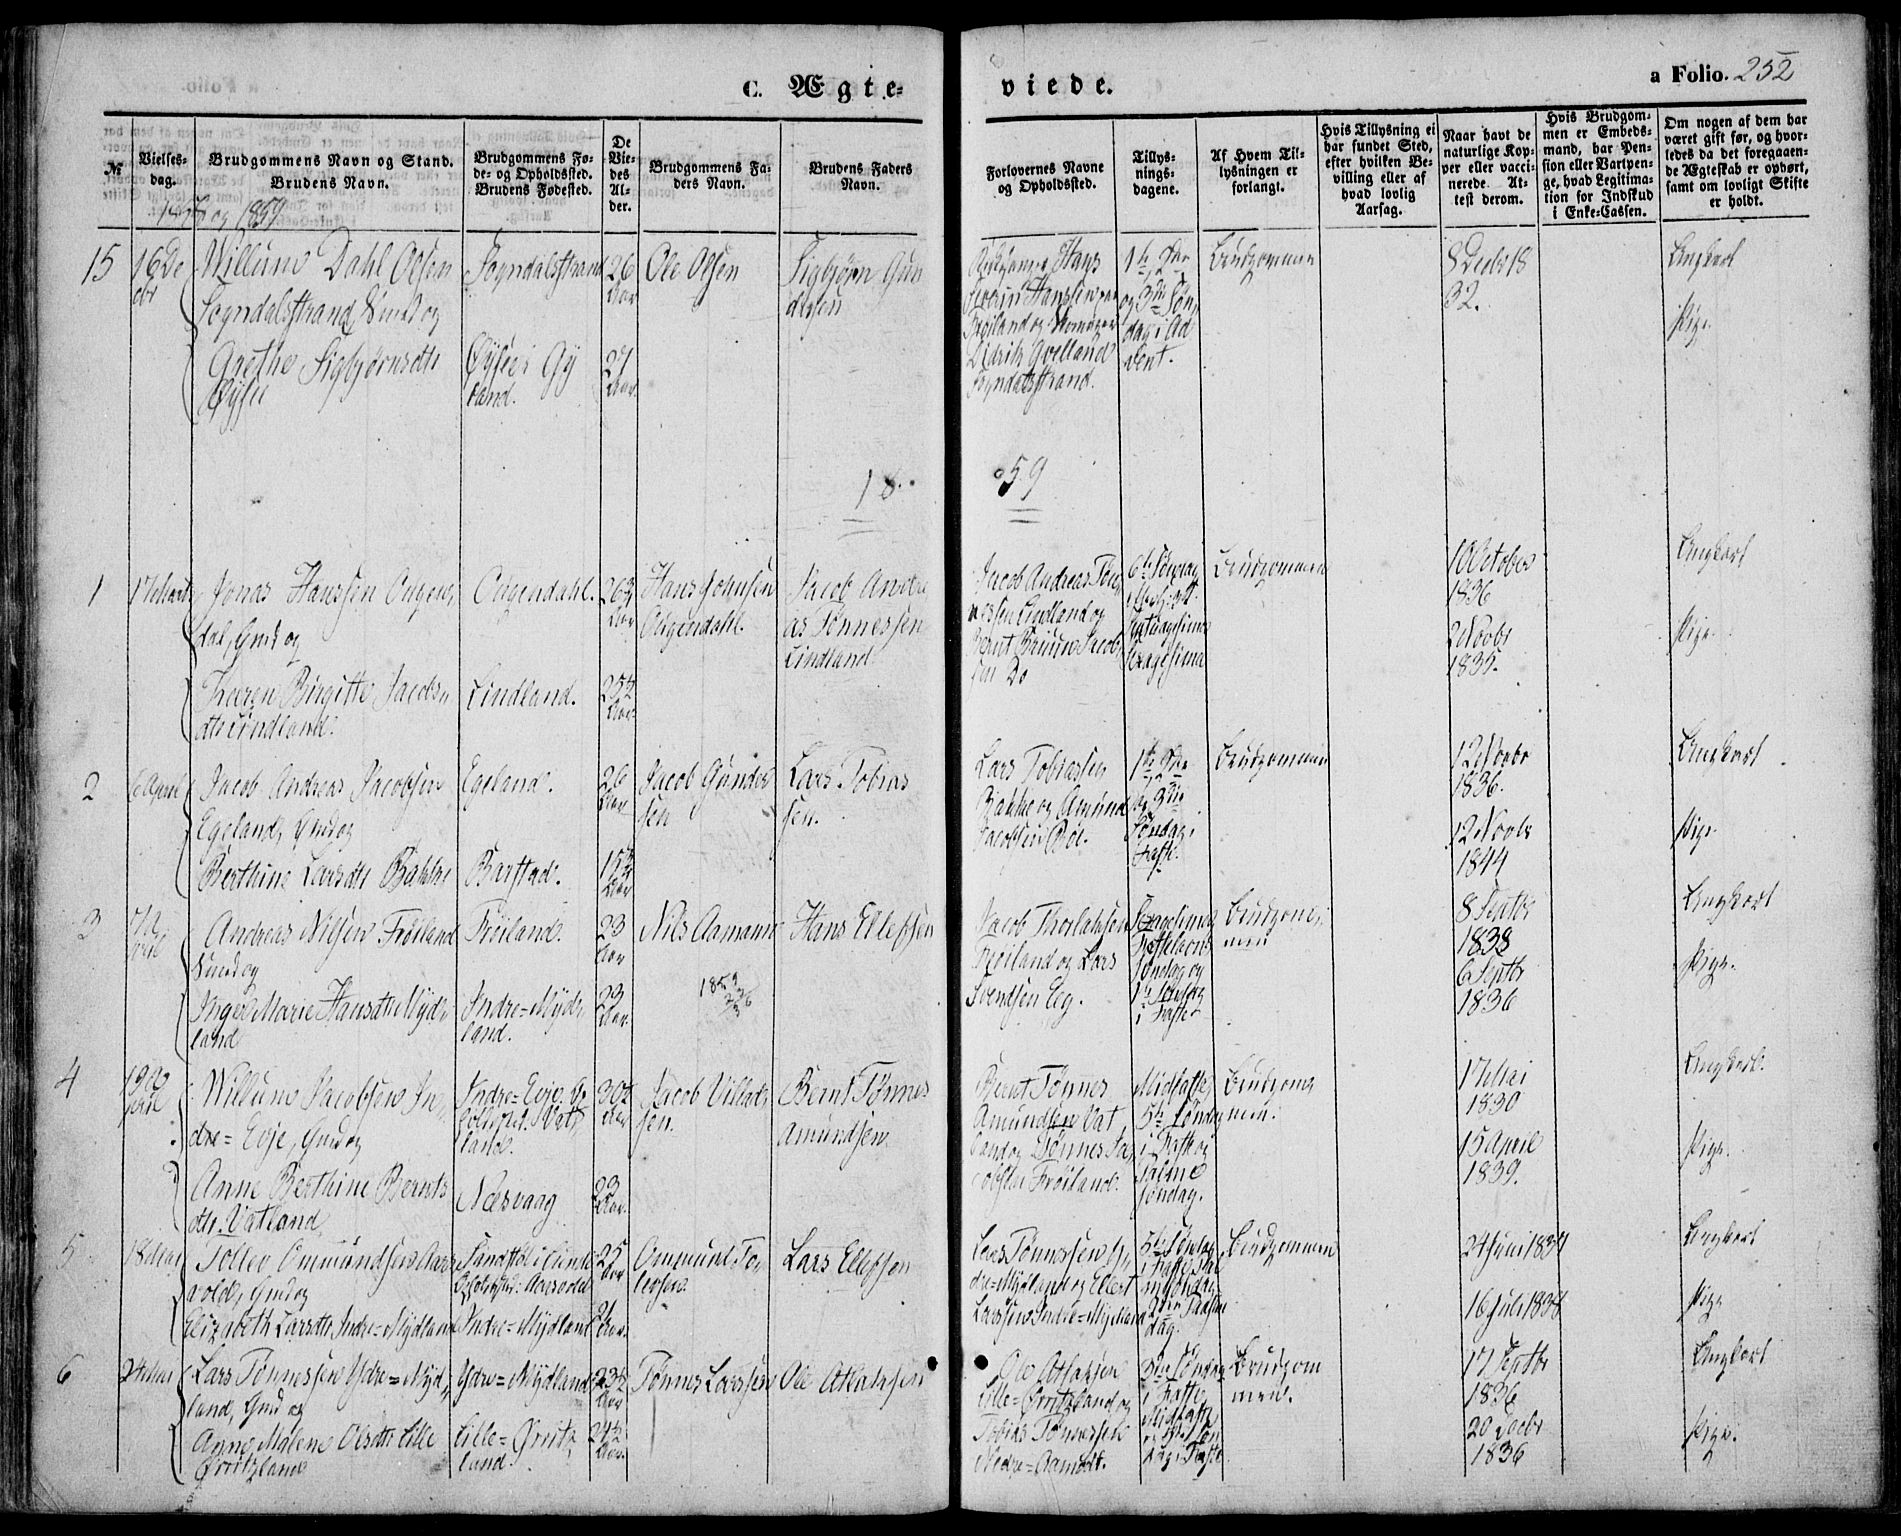 C. Ægte=
viede.
a Folio. 252
№
Vielses-
dag.
Brudgommens Navn og Stand.
Brudens Navn.
Brudgommens Fø-
de- og Opholdssted.
Brudens Fødested.
De
Vie-
des
Al-
der.
Brudgommens Fa-
ders Navn.
Brudens Faders
Navn.
Forlovernes Navne
og Opholdssted.
Tillys-
nings-
dagene.
Af Hvem Til-
lysningen er
forlangt.
Hvis Tillysning ei
har fundet Sted,
efter hvilken Be-
villing eller af
hvad lovlig
Aarsag.
Naar havt de
naturlige Kop-
per eller vacci-
nerede. At-
test derom.
Hvis Brudgom-
men er Embeds-
mand, har Pen-
sion eller Vartpen-
ge, hvad Legitima-
tion for Indskud
i Enke-Cassen.
Om nogen af dem har
været gift før, og hvor-
ledes da det foregaaen-
de Ægteskab er ophørt,
samt om lovligt Skifte
er holdt.
1858 og 1859
15
16 De
cbr
Willum Dahl Olsen
Sogndalsstrand, Smed og
Grethe Sigbjørnsdtr
Øysæ
Sogndalsstrand
Øysæ i Gy
land.
26
Aar
27
Aar
Ole Olsen
Sigbjørn Gun
dersen
Hans
Severin Hanssen paa
Frøiland og
Didrik Qvelland
Sogndalsstrand.
1ste, 2den
og 3die Søn,
dag i Ad
vent.
Brudgommen
8 Decbr 18
32.
Ungkarl
Pige.
18
59
1
17 Marts
Jonas Hanssen Ougen,
dal, Gmd og
Karen Birgitte Jacobs,,
dtr Lindland.
Ougendahl.
Lindland.
26¾
Aar
25½
Aar
Hans Johnsen
Ougendahl.
Jacob Andre
as Tønnessen
Lindland
Jacob Andreas Tøn,
nessen Lindland og
Bernt Jacob,
sen Do
6te Søndag
Septuagesima
Sexagesima
Brudgommen
10 October
1836
2 Novbr
1835.
Ungkarl
Pige.
2
6 April
Jacob Andreas Jacobsen
Egeland, Gmd og
Berthine Larsdtr Bakke
Egeland.
Barstad.
26
Aar
Aar
Jacob Gunder
sen
Lars Tobias
sen.
Lars Tobiassen
Bakke og Amund
Jacobsen Bøe.
1ste, 2den
og 3die
Søndag i
Faste.
Brudgommen
12 Novbr
1836.
12 Novbr
1844
Ungkarl
Pige
3
Andreas Nilsen Frøiland
Smed og
Inger Marie Hansdtr Myd,
land
Frøiland.
Indre=Myd,
land.
23
Aar
23
Aar.
Nils Aamann
Hans Ellefsen
1859
Jacob Thorlaksen
Frøiland og Lars
Svendsen Eeg.
Sexagesima
Fastelavns
Søndag og
1ste Søndag
i Faste
Brudgom,
men
8 Septbr
1838
6 Septbr
1836
Ungkarl
Pige.
4
Willum Jacobsen In,
dre=Evje, Gmd og
Anne Berthine Bernts
dtr. Vatland
Indre=Evje. Op
holdsst. Vat,
land.
Næsvaag
30½
Aar
23
Aar.
Jacob Villads
sen.
Bernt Tønnes
Amundsen
Bernt Tønnes
Amundsen Vat
land og Tønnes Ja,
cobsen Frøiland.
Midfaste,
5te Søndag
i Faste og
Palme
søndag.
Brudgom
men.
17 Mai
1830
15 April
1839.
Ungkarl.
Pige.
5
18 Mai
Tollev Ommundsen Aars
vold, Gmd og
Elizabeth Larsdtr Indre=Mydland
Indre=Mydland
25
Aar
21
Aar.
Ommund To,
levsen.
Lars Ellefsen
Lars Tønnessen In,
dre=Mydland og Ellert
Larssen Indre=Mydland
5te Søndag
i Faste, Pal
mesøndag
2den Paaske
dag.
Brudgommen
24 Juni 1834
16 Juli 1838
Ungkarl
Pige
6
24 Mai
Lars Tønnessen Ydre=Myd,
land, Gmd og
Anne Malene Olsdtr Lille
Ørritzland
Ydre=Mydland
Lille=Ørritz,
land.
23½
Aar
24½
Aar.
Tønnes Larssen
Ole Atlaksen
Ole Atlaksen
Lille=Ørritzland og
Tobias Tønnessen
Nedre=Aamodt.
3die Søndag
i Faste,
Midfaste
og 5te Søn
dag i Faste
Brudgom
men.
17 Septbr
1836
20 Decbr
1836
Ungkarl
Pige.